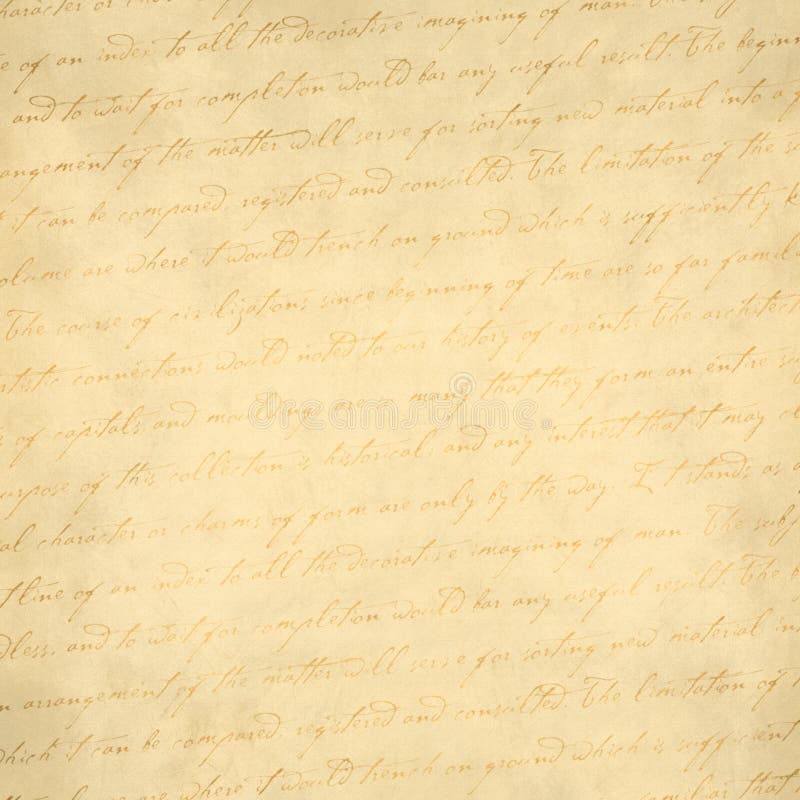 character or
e of an index to all the decorative imagining of man. The
and to wait for completion would bar any useful result. The beginn
angement of the matter will serve for sorting new material into a
it can be compared, registered and consulted. The limitation of the
olume are where it would trench on ground which is sufficiently k
The course of civilizations since beginning of time are so far famil
rtistic connections would noted to our history of events. The architect
s of capitals and mouldings are so many that they form an entire
urpose of this collection is historical, and any interest that it may cl
al character or charms of form are only by the way. I t stands as a
tline of an index to all the decorative imagining of man. The subj
dless, and to wait for completion would bar any useful result. The b
n arrangement of the matter will serve for sorting new material in
which it can be compared, registered and consulted. The limitation of
are where it would trench on ground which is sufficient
familiar that
dreamstime